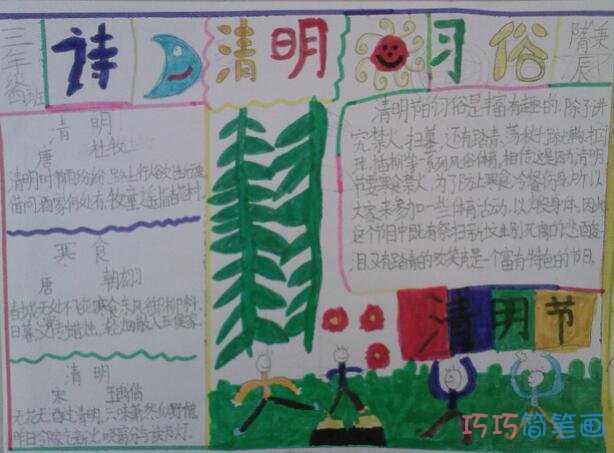 三年级四班
诗
清明
习俗
隋秉辰
清明
唐 杜牧
清明时节雨纷纷 路上行人欲断魂
借问酒家何处有 牧童遥指杏花村
寒食
唐 韩翃
春城无处不飞花 寒食东风御柳斜
日暮汉宫传蜡烛 轻烟散入五侯家
清明
宋 王禹偁
无花无酒过清明
昨日邻家乞新火 晓窗分与读书灯
清明节的习俗是丰富有趣的,除了讲
究禁火、扫墓,还有踏青、荡秋千、踢蹴鞠、打马
球、插柳等一系列风俗体育,相传这是因为清明
节要寒食禁火,为了防止寒食冷餐伤身,所以
大家来参加一些体育活动,以锻炼身体。因此,
这个节日中既有祭扫新坟生别死离的悲酸
泪,又有踏青的欢笑声,是一个富有特色的节日。
清明节
巧巧简笔画